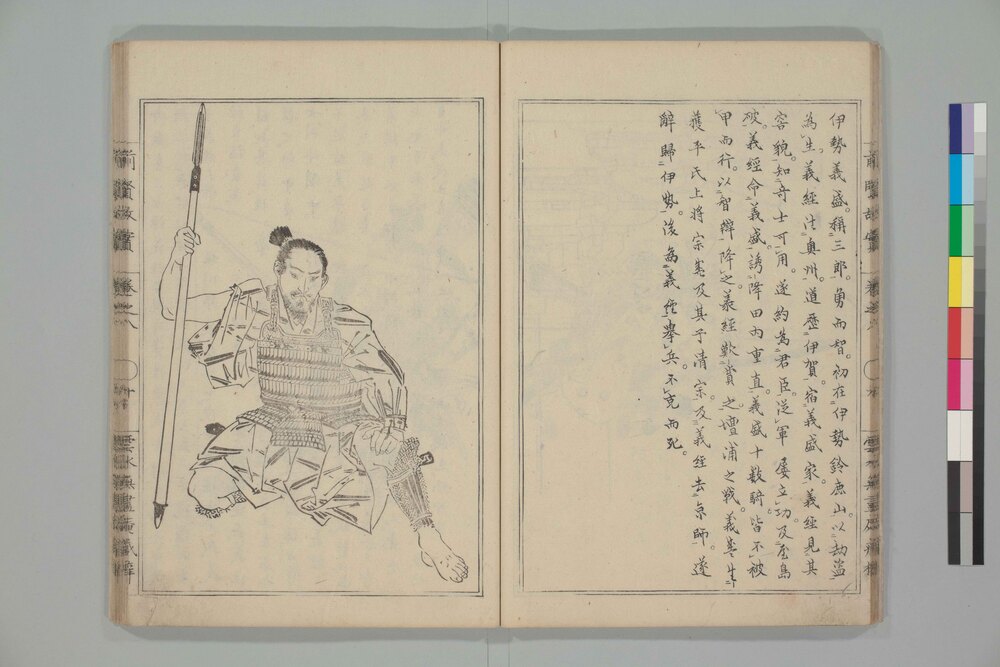 伊勢義盛。稱三郎。勇而智。初在伊勢鈴鹿山。以劫盜
為生。義經往奥州。道歷伊賀。宿義盛家。義經見其
容貌。知奇士可用。遂約為君臣。從軍屢立功。及屋島
破。義經命義盛。誘降田内重直。義盛十数騎皆不被
甲而行。以智辯降之。義經歎賞之。壇浦之戦。義盛生
獲平氏上將宗盛及其子清宗。及義經去京師。遂
辭歸伊勢。後為義經舉兵。不克而死。
前賢故實
卷之八